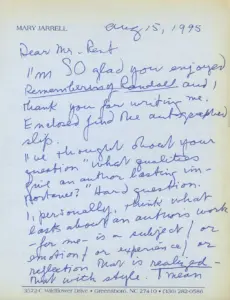 MARY JARRELL
Aug 15, 1995
Dear Mr. Rent
I'm SO glad you enjoyed
Remembering Randall and I
thank you for writing me.
Enclosed find the autographed
slip.
I've thought about your
question "What qualities
give an author lasting im-
portance?" Hard question.
I, personally, think what
lasts about an author's work
- for me - is a subject / or
emotion / or experience / or
reflection that is realized -
that with style. I mean
Greensboro, NC 27410 • (910) 282-0586